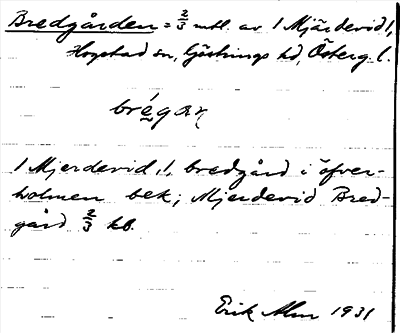 Bredgården = 2/3 mtl. av 1 Mjärdevid 1,
Hogstad sn, Göstrings hd, Österg. l.
brégaɳ
1 Mjerdevid, 1, bredgård i öfver-
holmen bek; Mjerdevid Bred-
gård 2/3 kb.
Erik Alm 1931